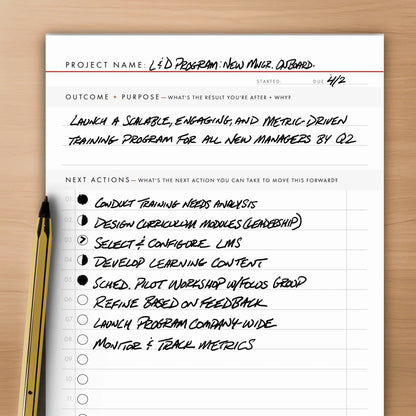 PROJECT NAME: L&D PROGRAM: NEW MNGR. ONBOARD.
STARTED: DUE 4/2
OUTCOME + PURPOSE — WHAT'S THE RESULT YOU'RE AFTER + WHY?
LAUNCH A SCALABLE, ENGAGING, AND METRIC-DRIVEN
TRAINING PROGRAM FOR ALL NEW MANAGERS BY Q2
NEXT ACTIONS — WHAT'S THE NEXT ACTION YOU CAN TAKE TO MOVE THIS FORWARD?
01 CONDUCT TRAINING NEEDS ANALYSIS
02 DESIGN CURRICULUM MODULES (LEADERSHIP)
03 SELECT & CONFIGURE LMS
04 DEVELOP LEARNING CONTENT
05 SCHED. PILOT WORKSHOP W/FOCUS GROUP
06 REFINE BASED ON FEEDBACK
07 LAUNCH PROGRAM COMPANY-WIDE
08 MONITOR & TRACK METRICS
09
10
11